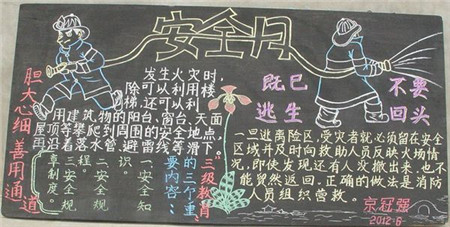 安全月
胆大心细 善用通道
发生火灾时,
除可利用楼
梯,还可以利
用建筑物的阳台、窗台、天面
屋顶等攀爬到周围的安全地点
再沿着落水管、避雷线等滑下
三级教育
的三个重
要内容:
一安全知
识。
二安全规
程。
三安全规
章制度。
既已
逃生
不要
回头
一旦逃离险区,受灾者就必须留在安全
区域并及时向救助人员反映火场情
况,即使发现还有人没撤出来,也不
能贸然返回。正确的做法是消防
人员组织营救。
京冠强
2012.6